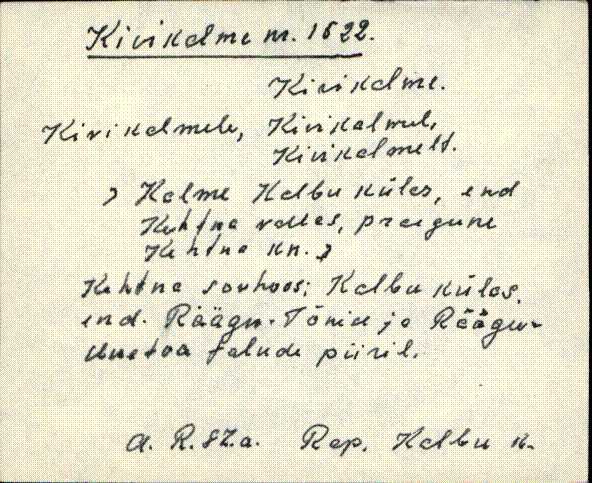 Kivikalme m. 1622.
Kivikalme.
Kivikalmele, Kivikalmel,
Kivikalmelt.
> Kalme Kalbu külas, end
Kehtna vallas, praegune
Kehtna kn. >
Kehtna sovhoos; Kalbu külas,
end. Räägu-Tõnu ja Räägu-
Uuetoa talude piiril.
A. R. Rap. Kalbu k.